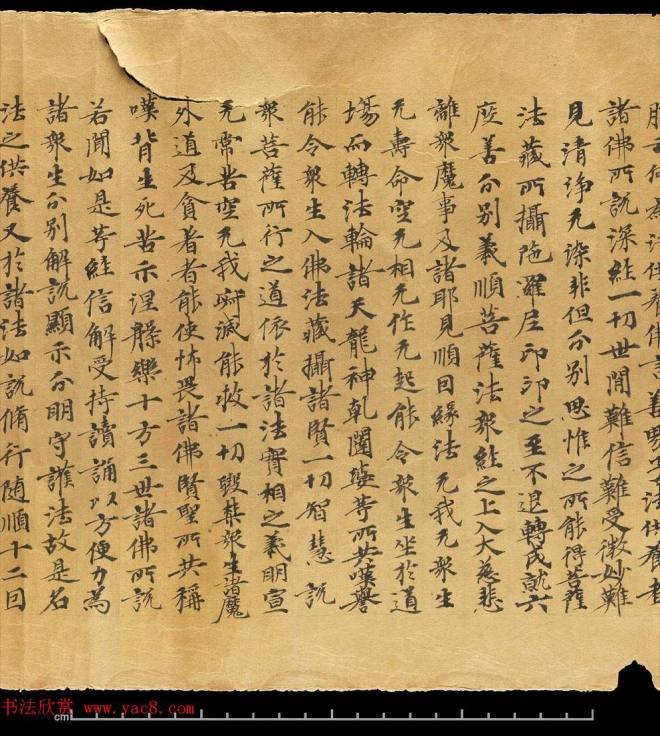 何為法供養佛言善男子法供養者
諸佛所說深經一切世間難信難受微妙難
見清淨无染非但分別思惟之所能得菩薩
法藏所攝陁羅尼印印之至不退轉成就六
度善分別義順菩薩法眾經之上入大慈悲
離眾魔事及諸耶見順因緣法无我无眾生
无壽命空无相无作无起能令眾生坐於道
場而轉法輪諸天龍神乹闥婆等所共嘆譽
能令眾生入佛法藏攝諸賢一切智慧說
眾菩薩所行之道依於諸法實相之義明宣
无常苦空无我寂滅能救一切毀禁眾生諸魔
外道及貪著者能使怖畏諸佛賢聖所共稱
嘆背生死苦示涅槃樂十方三世諸佛所說
若聞如是等經信解受持讀誦以方便力為
諸眾生分別解說顯示分明守護法故是名
法之供養又於諸法如說脩行隨順十二因
书法欣赏 www.yac8.com
cm